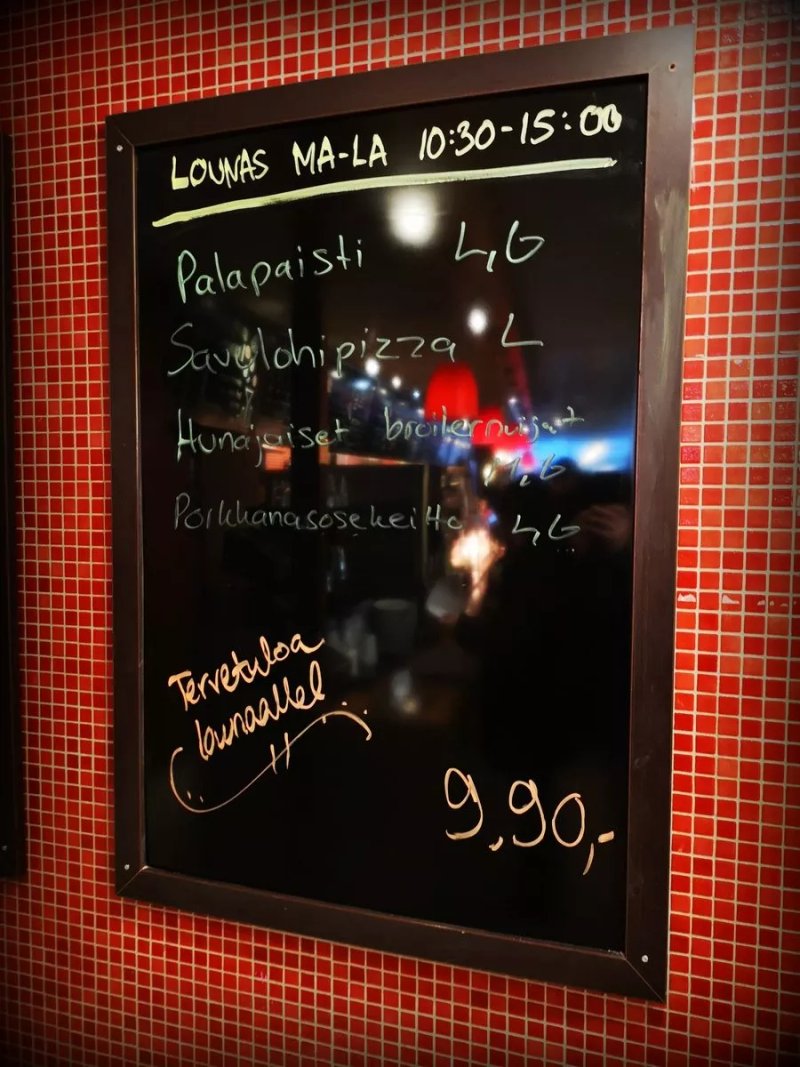 LOUNAS MA-LA 10:30-15:00
Palapaisti L,G
Savulohipizza L
Hunajaiset broilernuijat
M,G
Porkkanasosekeitto L,G
Tervetuloa
lounaalle!
9,90,-